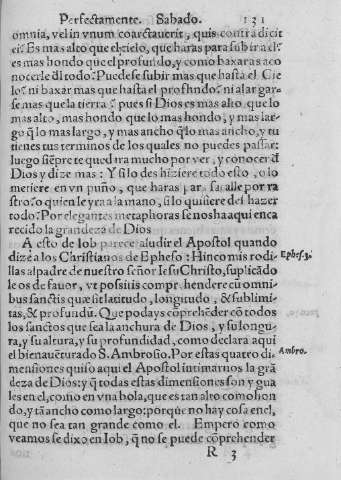 Perfectamente. Sabado. 131
omnia, vel in vnum coarctauerit, quis contradicit
ei? Es mas alto que el cielo, que haras para subir a el?
es mas hondo que el profundo, y como baxaras a co
nocerle d̃l todo? Puedese subir mas que hasta el Cie
lo? ni baxar mas que hasta el profundo? ni alargar-
se mas que la tierra? pues si Dios es mas alto que lo
mas alto, mas hondo que lo mas hondo, y mas lar-
go q̃ lo mas largo, y mas ancho q̃ lo mas ancho, y tu
tienes tus terminos de los quales no puedes passar:
luego siẽpre te quedira mucho por ver, y conocer d̃
Dios y dize mas: Y si lo deshiziere todo esto, o lo
metiere en vn puño, que haras para sacalle por ra
stro? o quien le yra a la mano, si lo quisiere deshazer
todo? Por elegantes metaphoras se nos ha aqui enca
recido la grandeza de Dios
A esto de Iob parece aludir el Apostol quando
dize a los Christianos de Epheso: Hinco mis rodi-
llas al padre de nuestro señor Iesu Christo, suplicãdo
le os de fauor, vt possitis comprehendere cũ omni
bus sanctis quæ sit latitudo, longitudo, & sublimi-
tas, & profundũ. Que podays cõprehẽder cõ todos
los sanctos que sea la anchura de Dios, y su longu-
ra, y su altura, y su profundidad, como declara aqui
el bienauẽturado S. Ambrosio. Por estas quatro di-
mensiones quiso aqui el Apostol intimarnos la grã
deza de Dios: y q̃ todas estas dimensiones son ygua
les en el, como en vna bola, que es tan alto como hon
do, y tã ancho como largo: porque no hay cosa en el,
que no sea tan grande como el. Empero como
veamos se dixo en Iob, q̃ no se puede cõprehender
R 3
Ephes. 3.
Ambro.